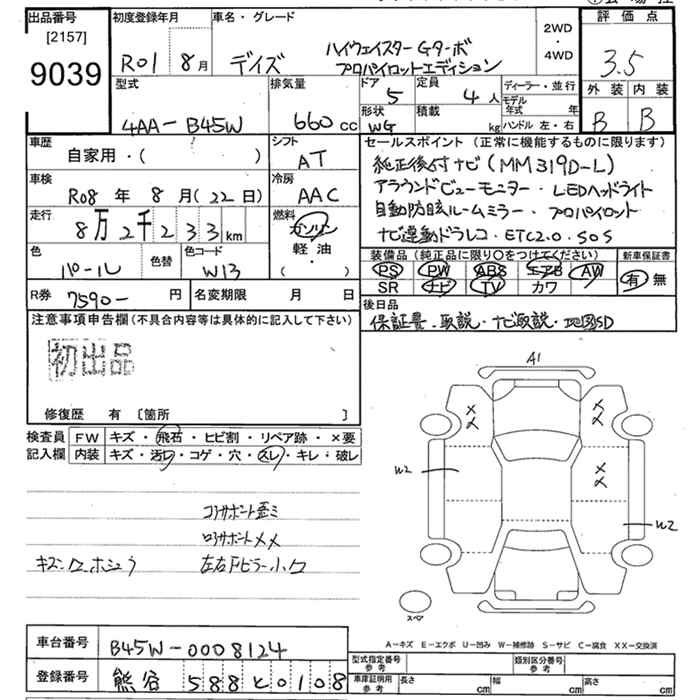 出品番号
[2157]
9039
初度登録年月
R01 8月
車名・グレード
デイズ
ハイウェイスターGターボ
プロパイロットエディション
2WD
・
4WD
評価点
3.5
外装 内装
B B
型式
4AA-B45W
排気量
660cc
ドア
5
定員
4人
形状
WG
積載
kg
ディーラー・並行
モデル年式 年
ハンドル 左・右
車歴
自家用・( )
シフト
AT
車検
R08年 8月(22日)
冷房
AAC
走行
8万2千233km
燃料
ガソリン
軽・油
( )
色
パール
色替
色コード
W13
R券
7590-円
名変期限 月 日
セールスポイント(正常に機能するものに限ります)
純正後付ナビ(MM319D-L)
アラウンドビューモニター・LEDヘッドライト
自動防眩ルームミラー・プロパイロット
ナビ連動ドラレコ・ETC2.0・SOS
装備品(純正品に限り〇をつけてください)
PS PW ABS エアB AW
SR ナビ TV カワ
新車保証書
有 無
後日品
保証書・取説・ナビ取説・地図SD
注意事項申告欄(不具合内容等は具体的に記入して下さい)
初出品
修復歴 有 〔箇所 〕
検査員
記入欄
FW キズ・飛石・ヒビ割・リペア跡・×要
内装 キズ・汚レ・コゲ・穴・スレ・キレ・破レ
コアサポート歪ミ
ロアサポートメメ
キズ・ワ・ホシュウ
左右Fピラー小ワ
A1
W2
W2
スペア
A－キズ E－エクボ U－凹み W－補修跡 S－サビ C－腐食 XX－交換済
車台番号
B45W-0008124
登録番号
熊谷 588と0108
型式指定番号
参考
類別区分番号
参考
車庫証明用
参考
長さ cm
幅 cm
高さ cm